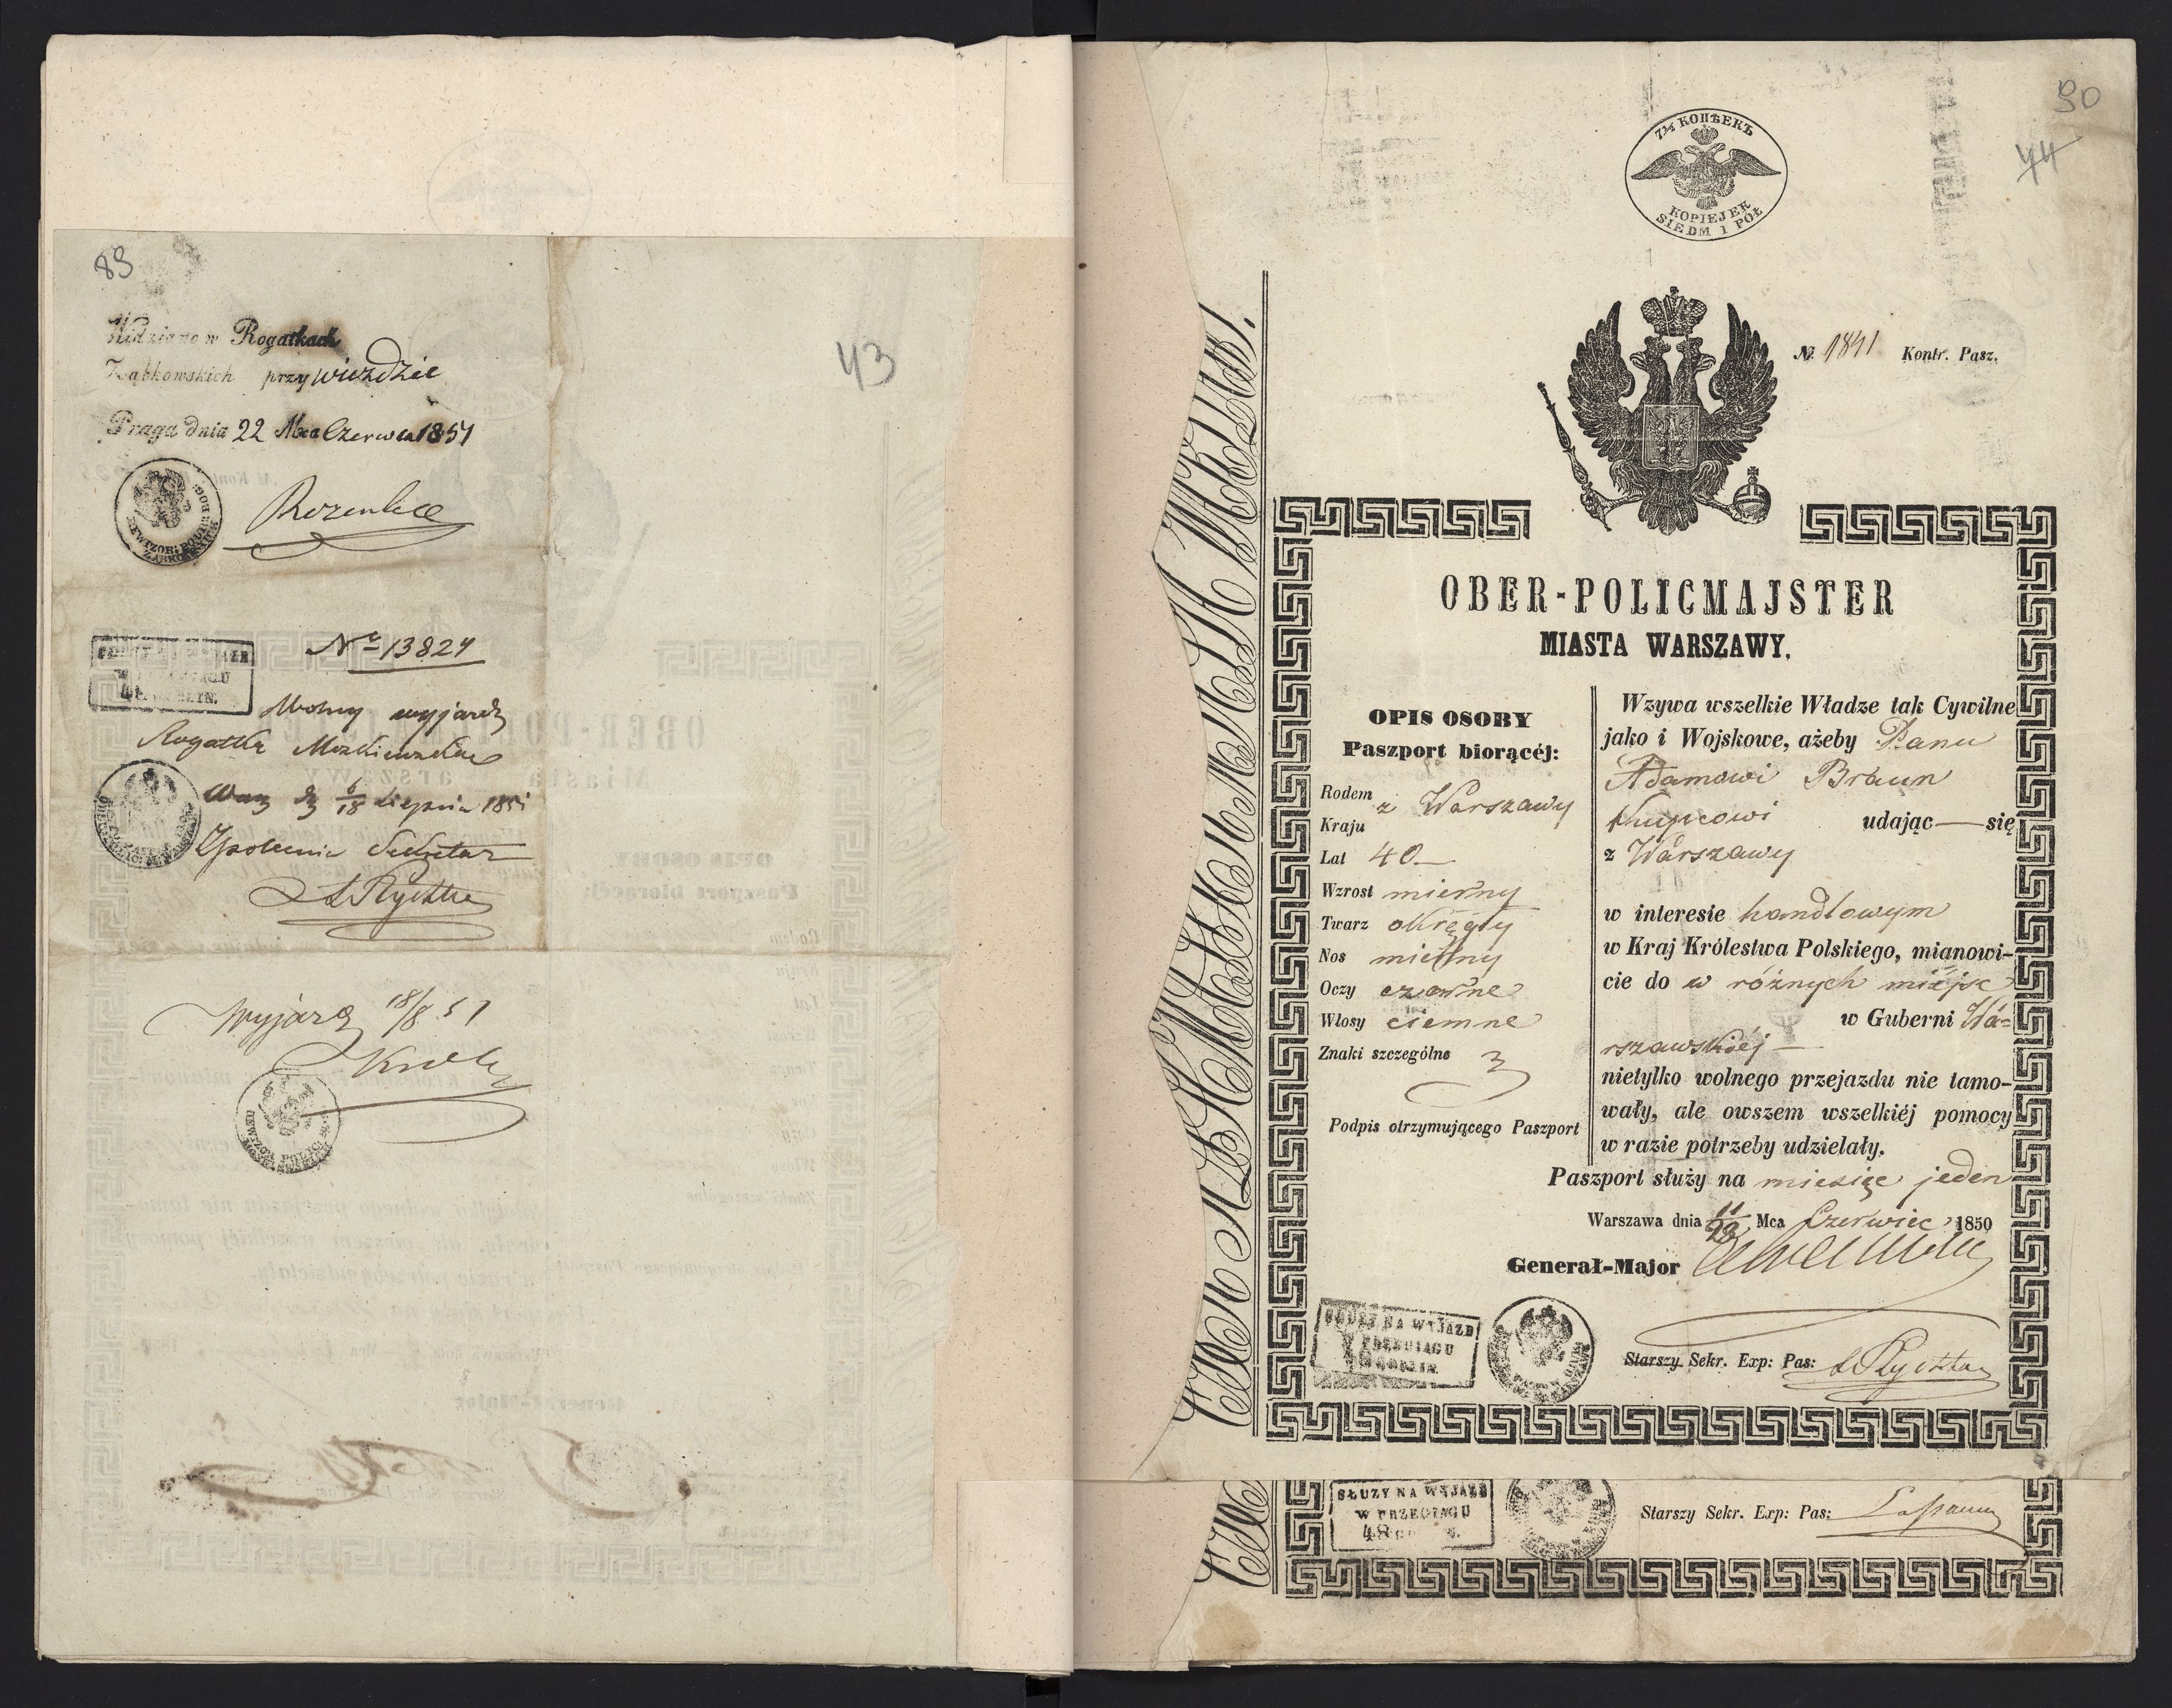 83
43
Widziano w Rogatkach
Ząbkowskich przy wieździe
Praga dnia 22 Mca Czerwca 1851
No 13824
Wolny wyjazd
Rogatką
6/18 Sierpnia 1851
Sekretarz
Wyjazd 18/8 51
REWIZOR POLICYI
90
44
7½ КОПѢЕКЪ
KOPIEJEK
SIEDM I PÓŁ
№ 1841 Kontr. Pasz.
OBER-POLICMAJSTER
MIASTA WARSZAWY.
OPIS OSOBY
Paszport biorącéj:
Rodem
Kraju z Warszawy
Lat 40
Wzrost mierny
Twarz okrągły
Nos mierny
Oczy czarne
Włosy ciemne
Znaki szczególne
Podpis otrzymującego Paszport
Wzywa wszelkie Władze tak Cywilne
jako i Wojskowe, ażeby Panu
Adamowi Braun
Kupcowi udając — się
z Warszawy
w interesie handlowym
w Kraj Królestwa Polskiego, mianowi-
cie do w różnych miejsc
w Guberni Wa=
rszawskiéj —
nietylko wolnego przejazdu nie tamo-
wały, ale owszem wszelkiéj pomocy
w razie potrzeby udzielały.
Paszport służy na miesiąc jeden
Warszawa dnia 11/23 Mca Czerwiec 1850
Generał-Major
SŁUŻY NA WYJAZD
W PRZECIĄGU
48 GODZIN
Starszy Sekr. Exp: Pas:
SŁUŻY NA WYJAZD
W PRZECIĄGU
48
Starszy Sekr. Exp: Pas: